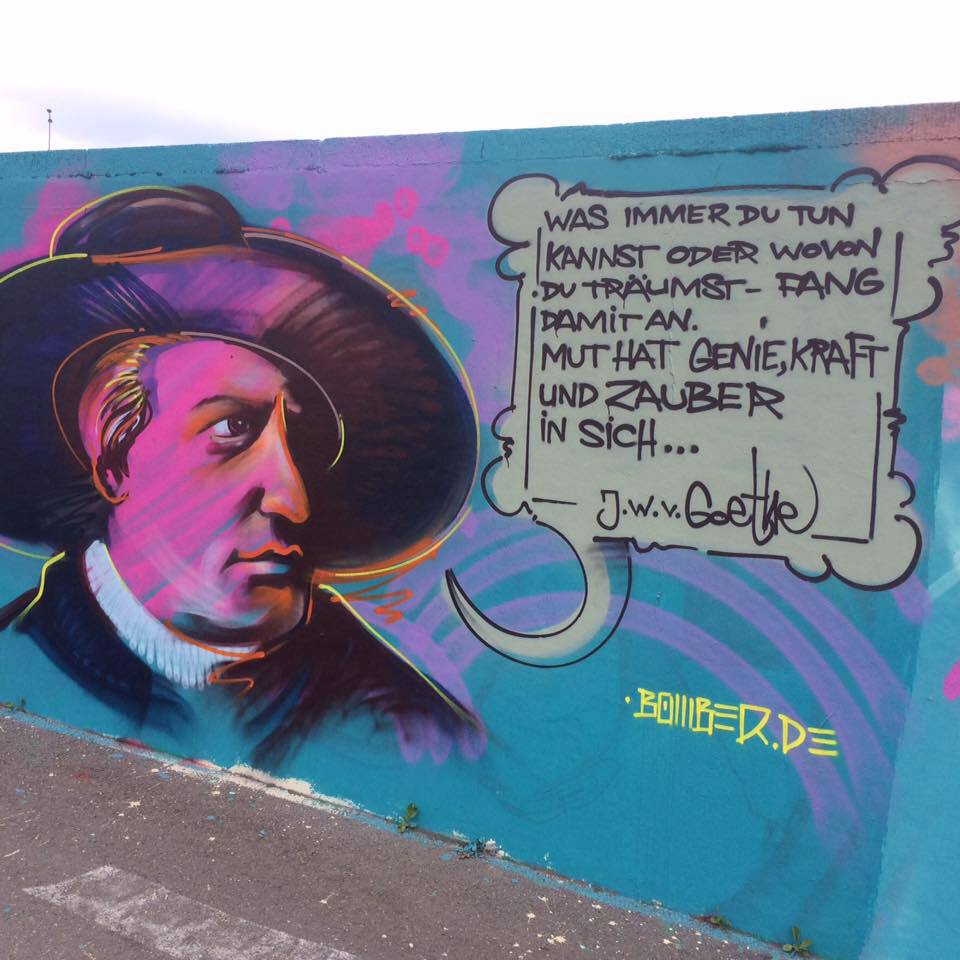 WAS IMMER DU TUN
KANNST ODER WOVON
DU TRÄUMST - FANG
DAMIT AN.
MUT HAT GENIE, KRAFT
UND ZAUBER
IN SICH...
J.W.V. Goethe
·BOMBER.DE